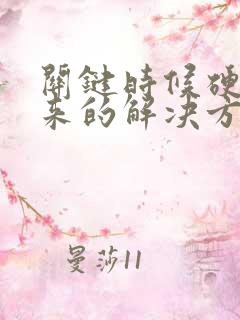 關鍵時候硬
來的解决方
曼莎11